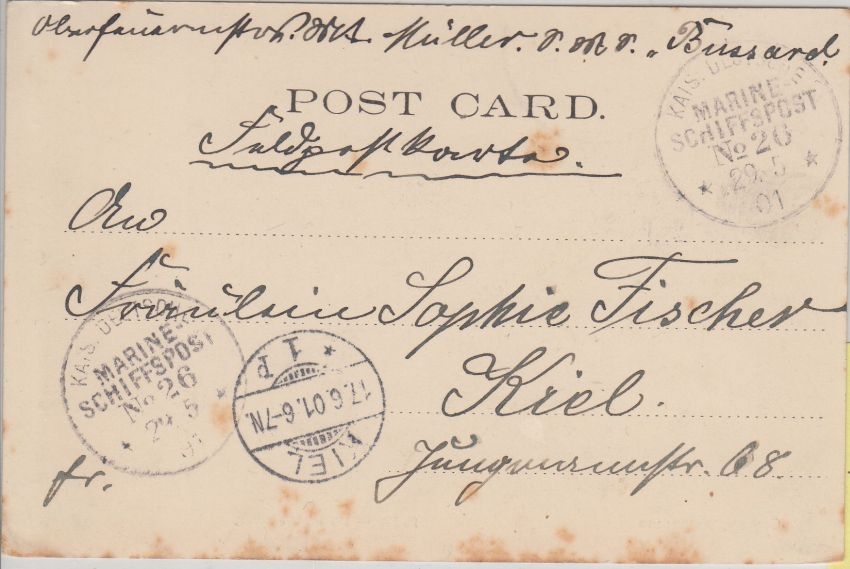 Oberfeuermstrs. Mt. Müller. S. M. S. „Bussard.
POST CARD.
Feldpostkarte.
An
Fräulein Sophie Fischer
Kiel.
Jungmannstr. 68.
fr.
KAIS. DEUTSCHE
MARINE-
SCHIFFSPOST
No 26
29. 5
01
KAIS. DEUTSCHE
MARINE-
SCHIFFSPOST
No 26
29. 5
01
KIEL
17.6.01.6-7N.
* 1 P